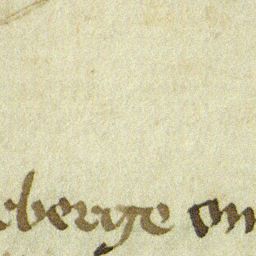 eberge on